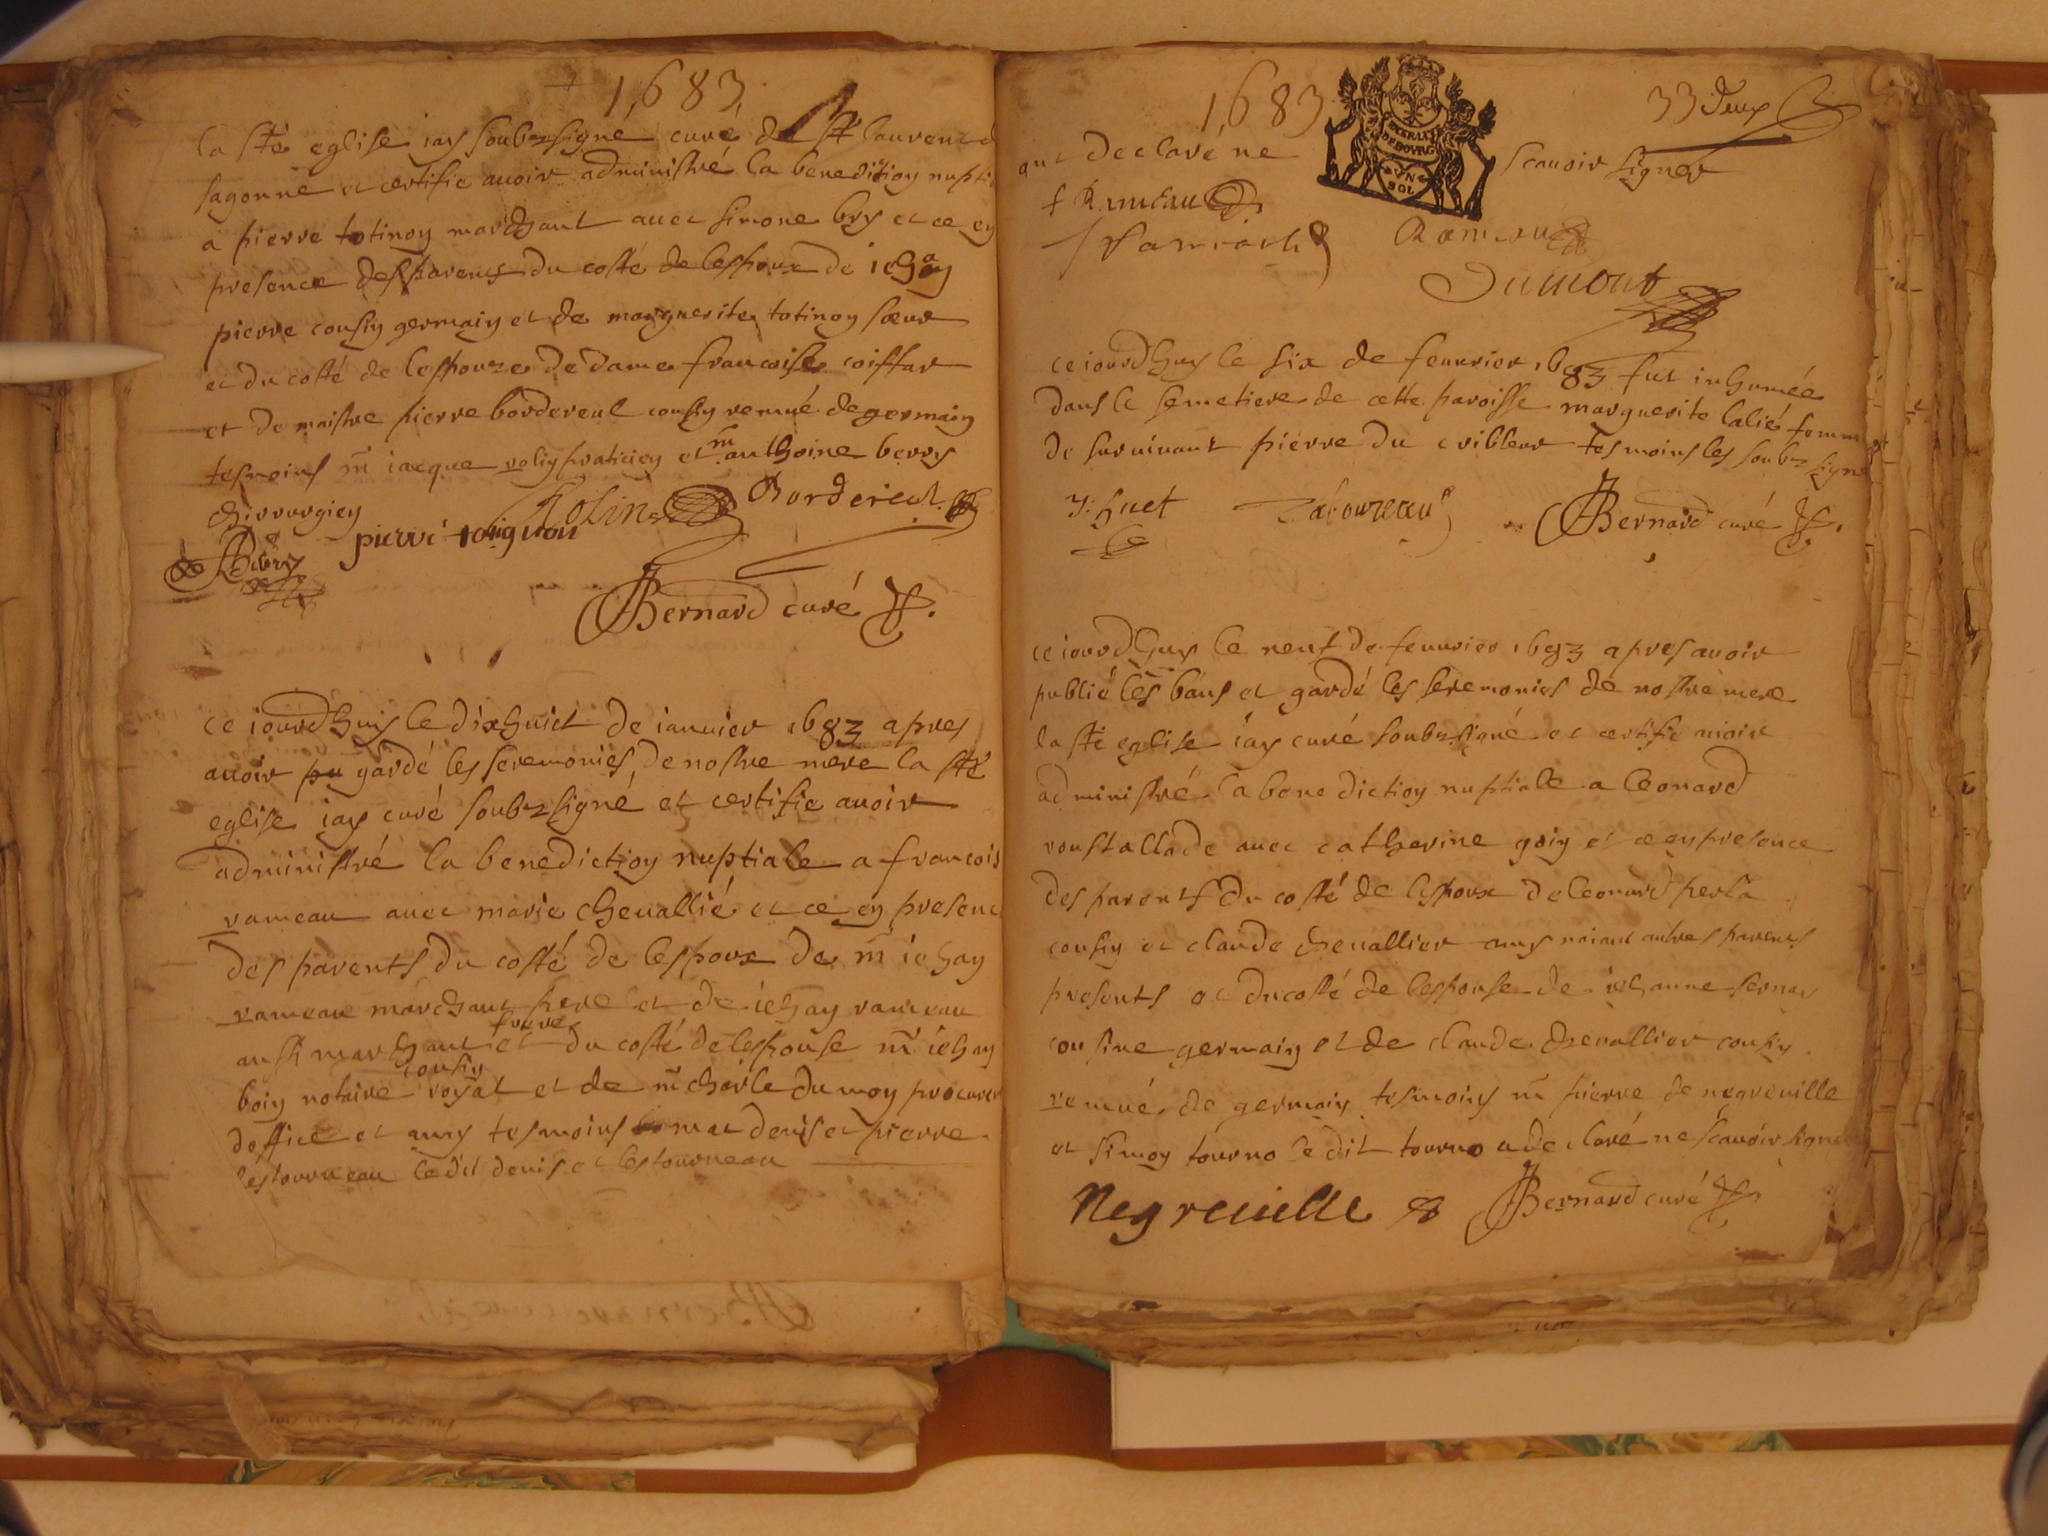 1683
la ste eglise iay soubzsigné curé de st laurent d
sagonne et certifie auoir administré la beneditioy nuptia
a pierre totinoy marchant auec simone bry et ce ey
presence des parens du costé de lespoux de iehay
pierre cousiy germaiy et de marguerite totinoy sœur
et du costé de lespouze de dame francoise coiffar
et de maistre pierre bordereul cousiy remué de germaiy
tesmoins m iacque roliy praticiey et m anthoine berry
chirurgiey
Rolin
Bordereul
pierre
Bery
Bernard curé
ce iourdhuy le dixhuict de ianuier 1683 apres
auoir gardé les seremonies de nostre mere la ste
eglise iay curé soubzsigné et certifie auoir
administré la benedictioy nuptiale a francois
rameau auec marie cheuallié et ce ey presence
des parents du costé de lespoux de m iehay
rameau marchant pere et de iehay rameau
aussi marchant frere et du costé de lespouse m iehay
boiy notaire royal cousiy et de m charle du moy procureur
doffice et amy tesmoins denis et pierre
lestourneau ledit denis et lestourneau
1683
DE BOVRG
VN
SOL
33 deux
ont declaré ne scauoir signer
f Rameau
Rameau
Dumont
ce iourdhuy le six de feurier 1683 fut inhumée
dans le semetiere de cette paroisse marguerite lalié femme
de suruiuant pierre du cribleur tesmoins les soubzsigne
huet
Bernard curé
ce iourdhuy le neuf de feurier 1683 apres auoir
publié les bans et gardé les seremonies de nostre mere
la ste eglise iay curé soubzsigné et certifie auoir
administré la benedictioy nuptialle a leonard
roustallade auec catherine goiy et ce ey presence
des parents du costé de lespoux de leonard perla
cousiy et claude cheuallier amy naiant autres parents
presents et du costé de lespouse de iehanne sernar
cousine germaiy et de claude cheuallier cousiy
remué de germaiy tesmoins m pierre de negreuille
et simoy tourno le dit tourno a declaré ne scauoir signe
Negreuille
Bernard curé